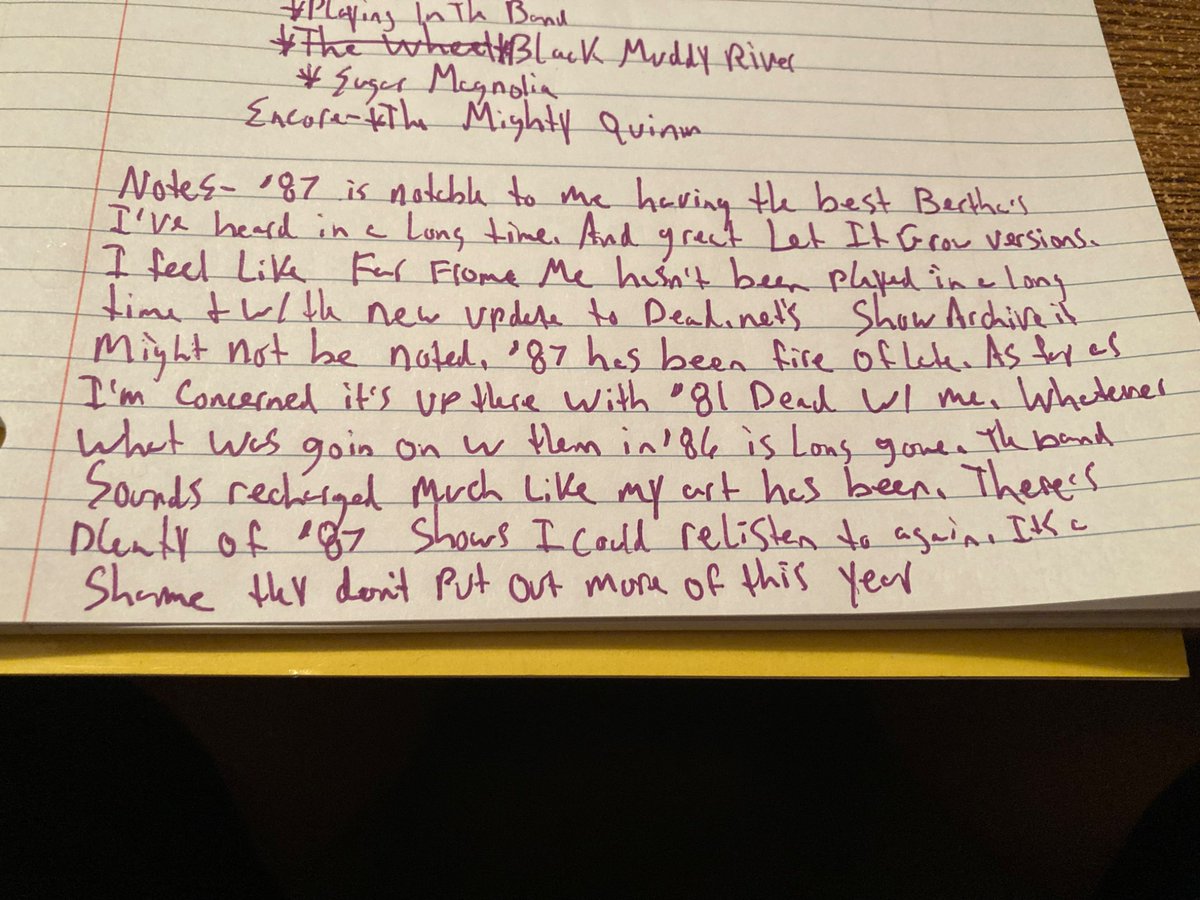 *Playing In Th Band
*The Wheel *Black Muddy River
* Sugar Magnolia
Encore-*The Mighty Quinn
Notes- '87 is notable to me having the best Bertha's
I've heard in a long time. And great Let It Grow versions.
I feel Like Far Frome Me hasn't been played in a long
time + w/ th new update to Dead.net's Show Archive it
Might not be noted. '87 has been fire of late. As far as
I'm Concerned it's up there with '81 Dead w/ me. Whatever
what was goin on w them in '86 is Long gone. Th band
Sounds recharged Much Like my art has been. There's
Plenty of '87 Shows I Could relisten to again. It's a
Shame they don't Put out more of this Year